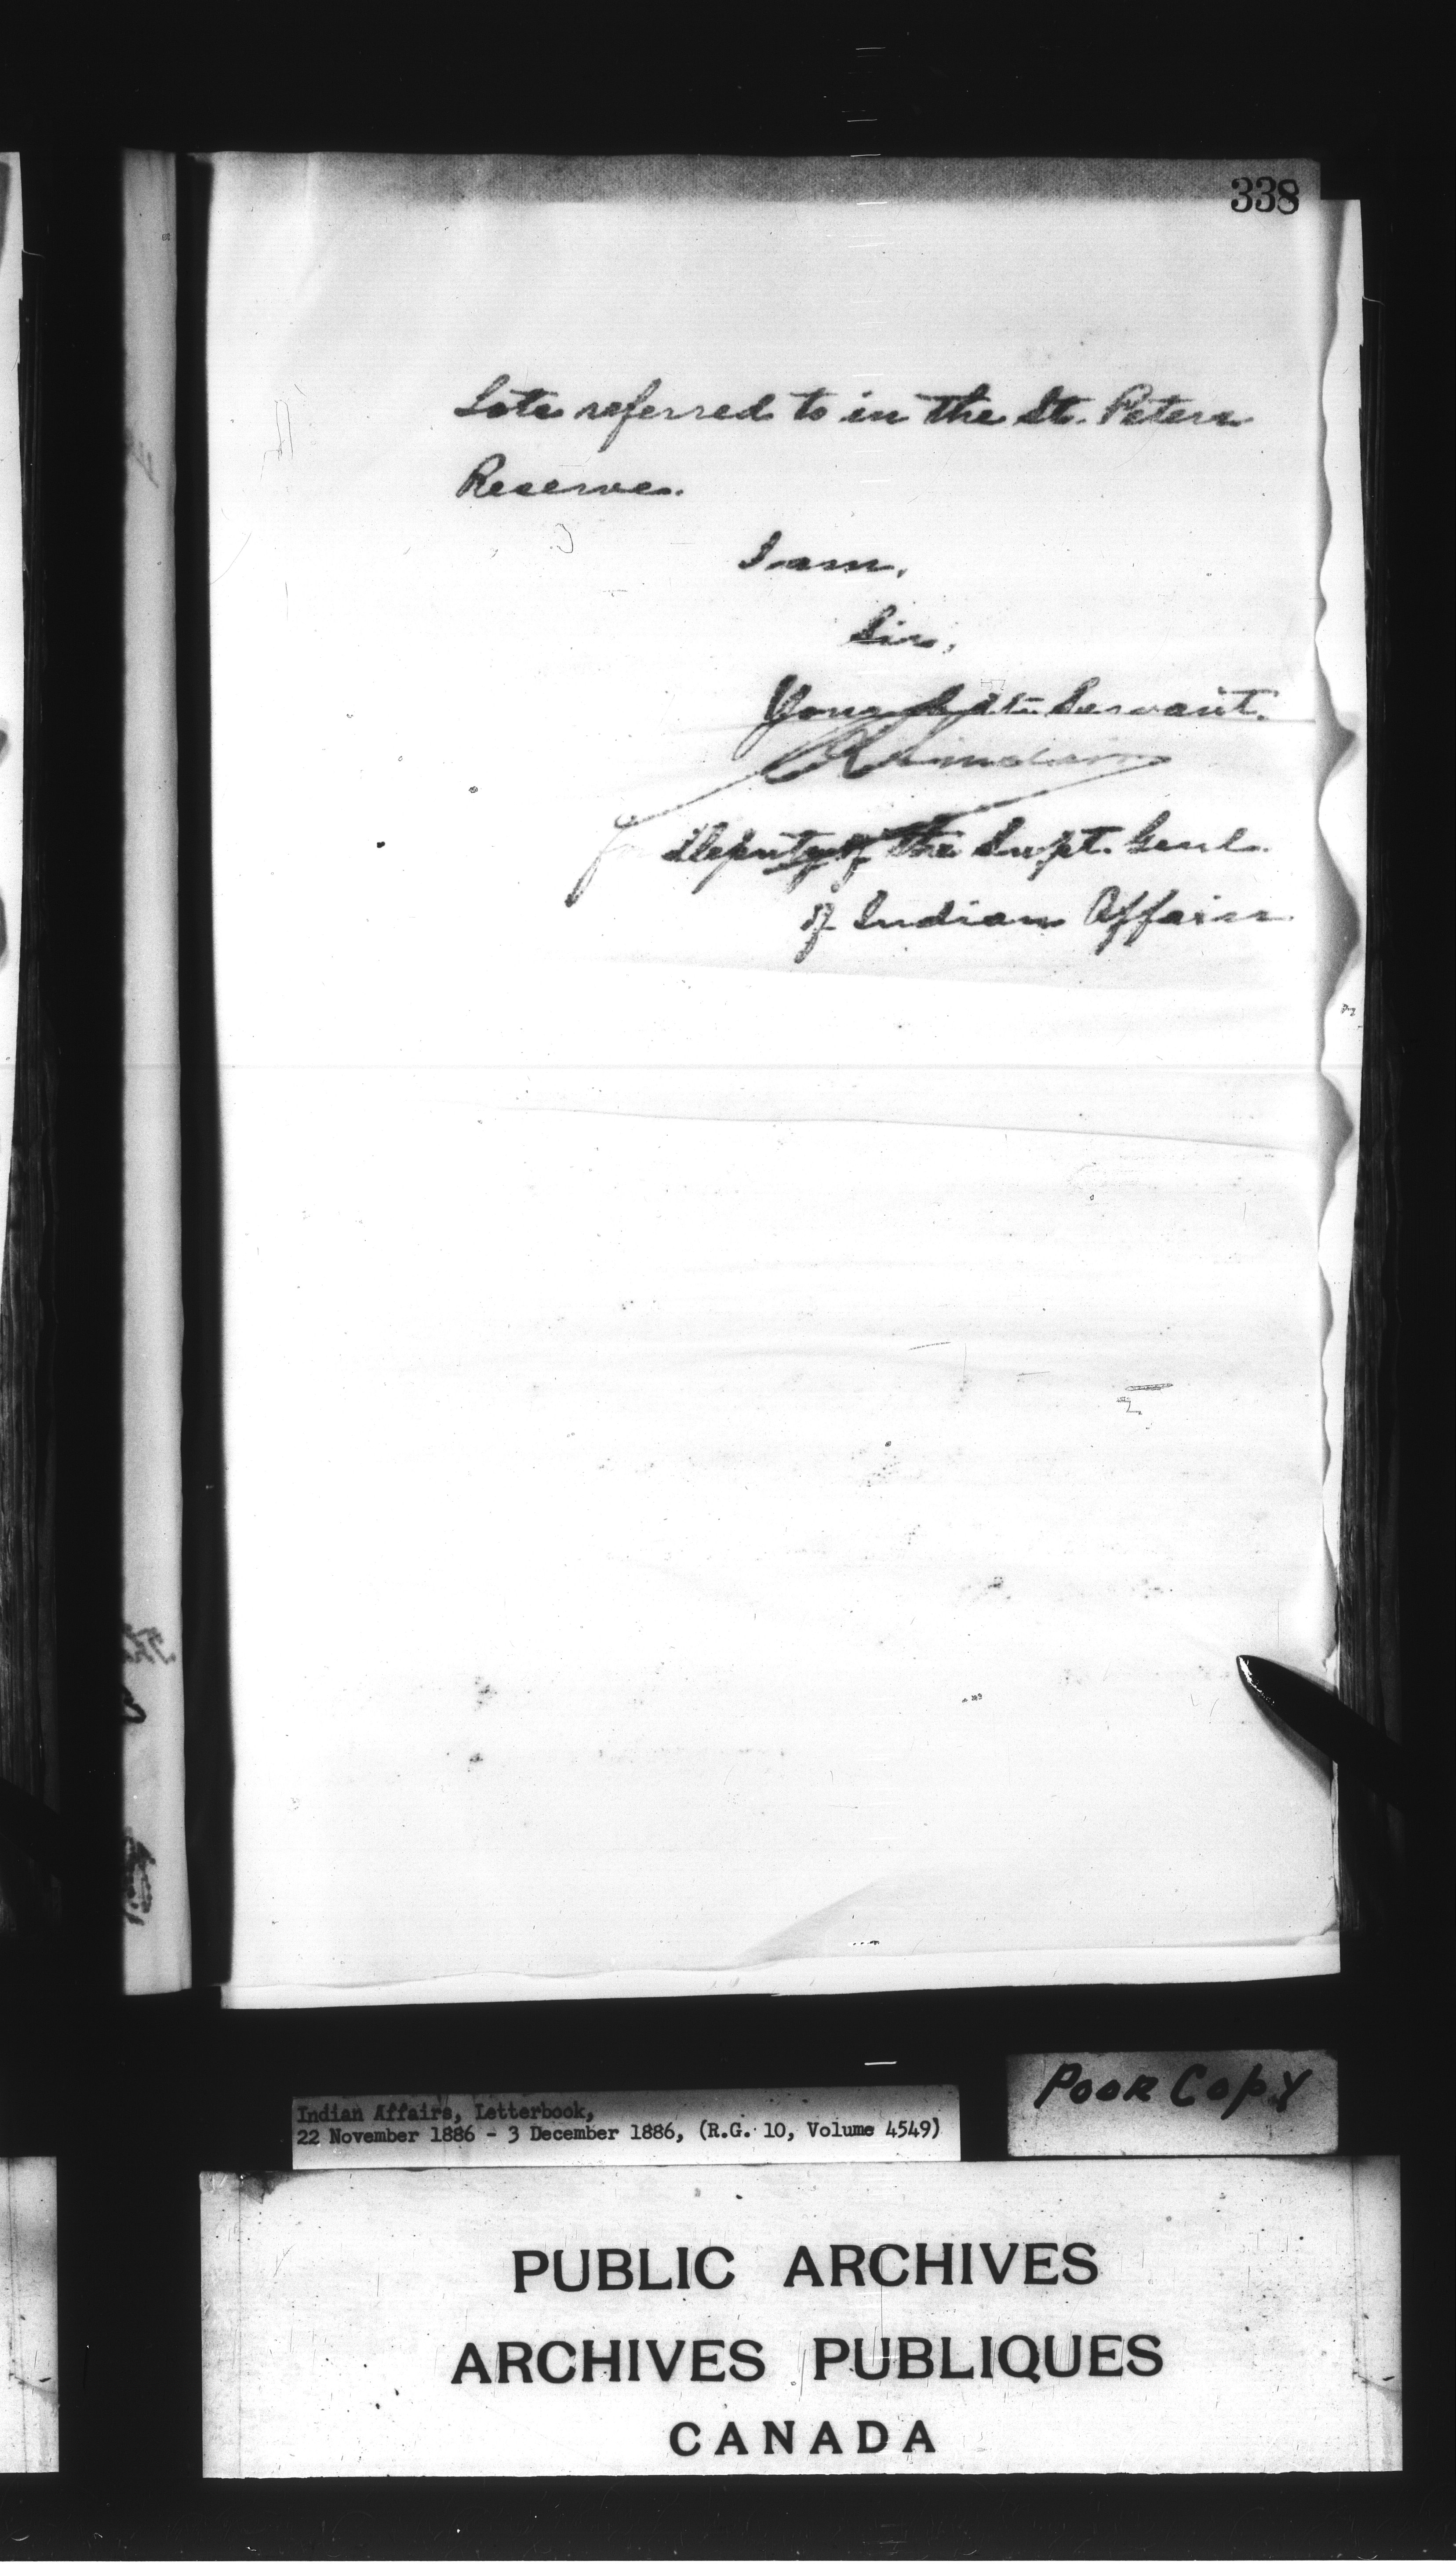 338
Lots referred to in the St. Peters
Reserve.
I am,
Sir,
Your Servant.
for Deputy of the Supt. Genl.
of Indian Affairs
Poor Copy
Indian Affairs, Letterbook,
22 November 1886 - 3 December 1886, (R.G. 10, Volume 4549)
PUBLIC ARCHIVES
ARCHIVES PUBLIQUES
CANADA